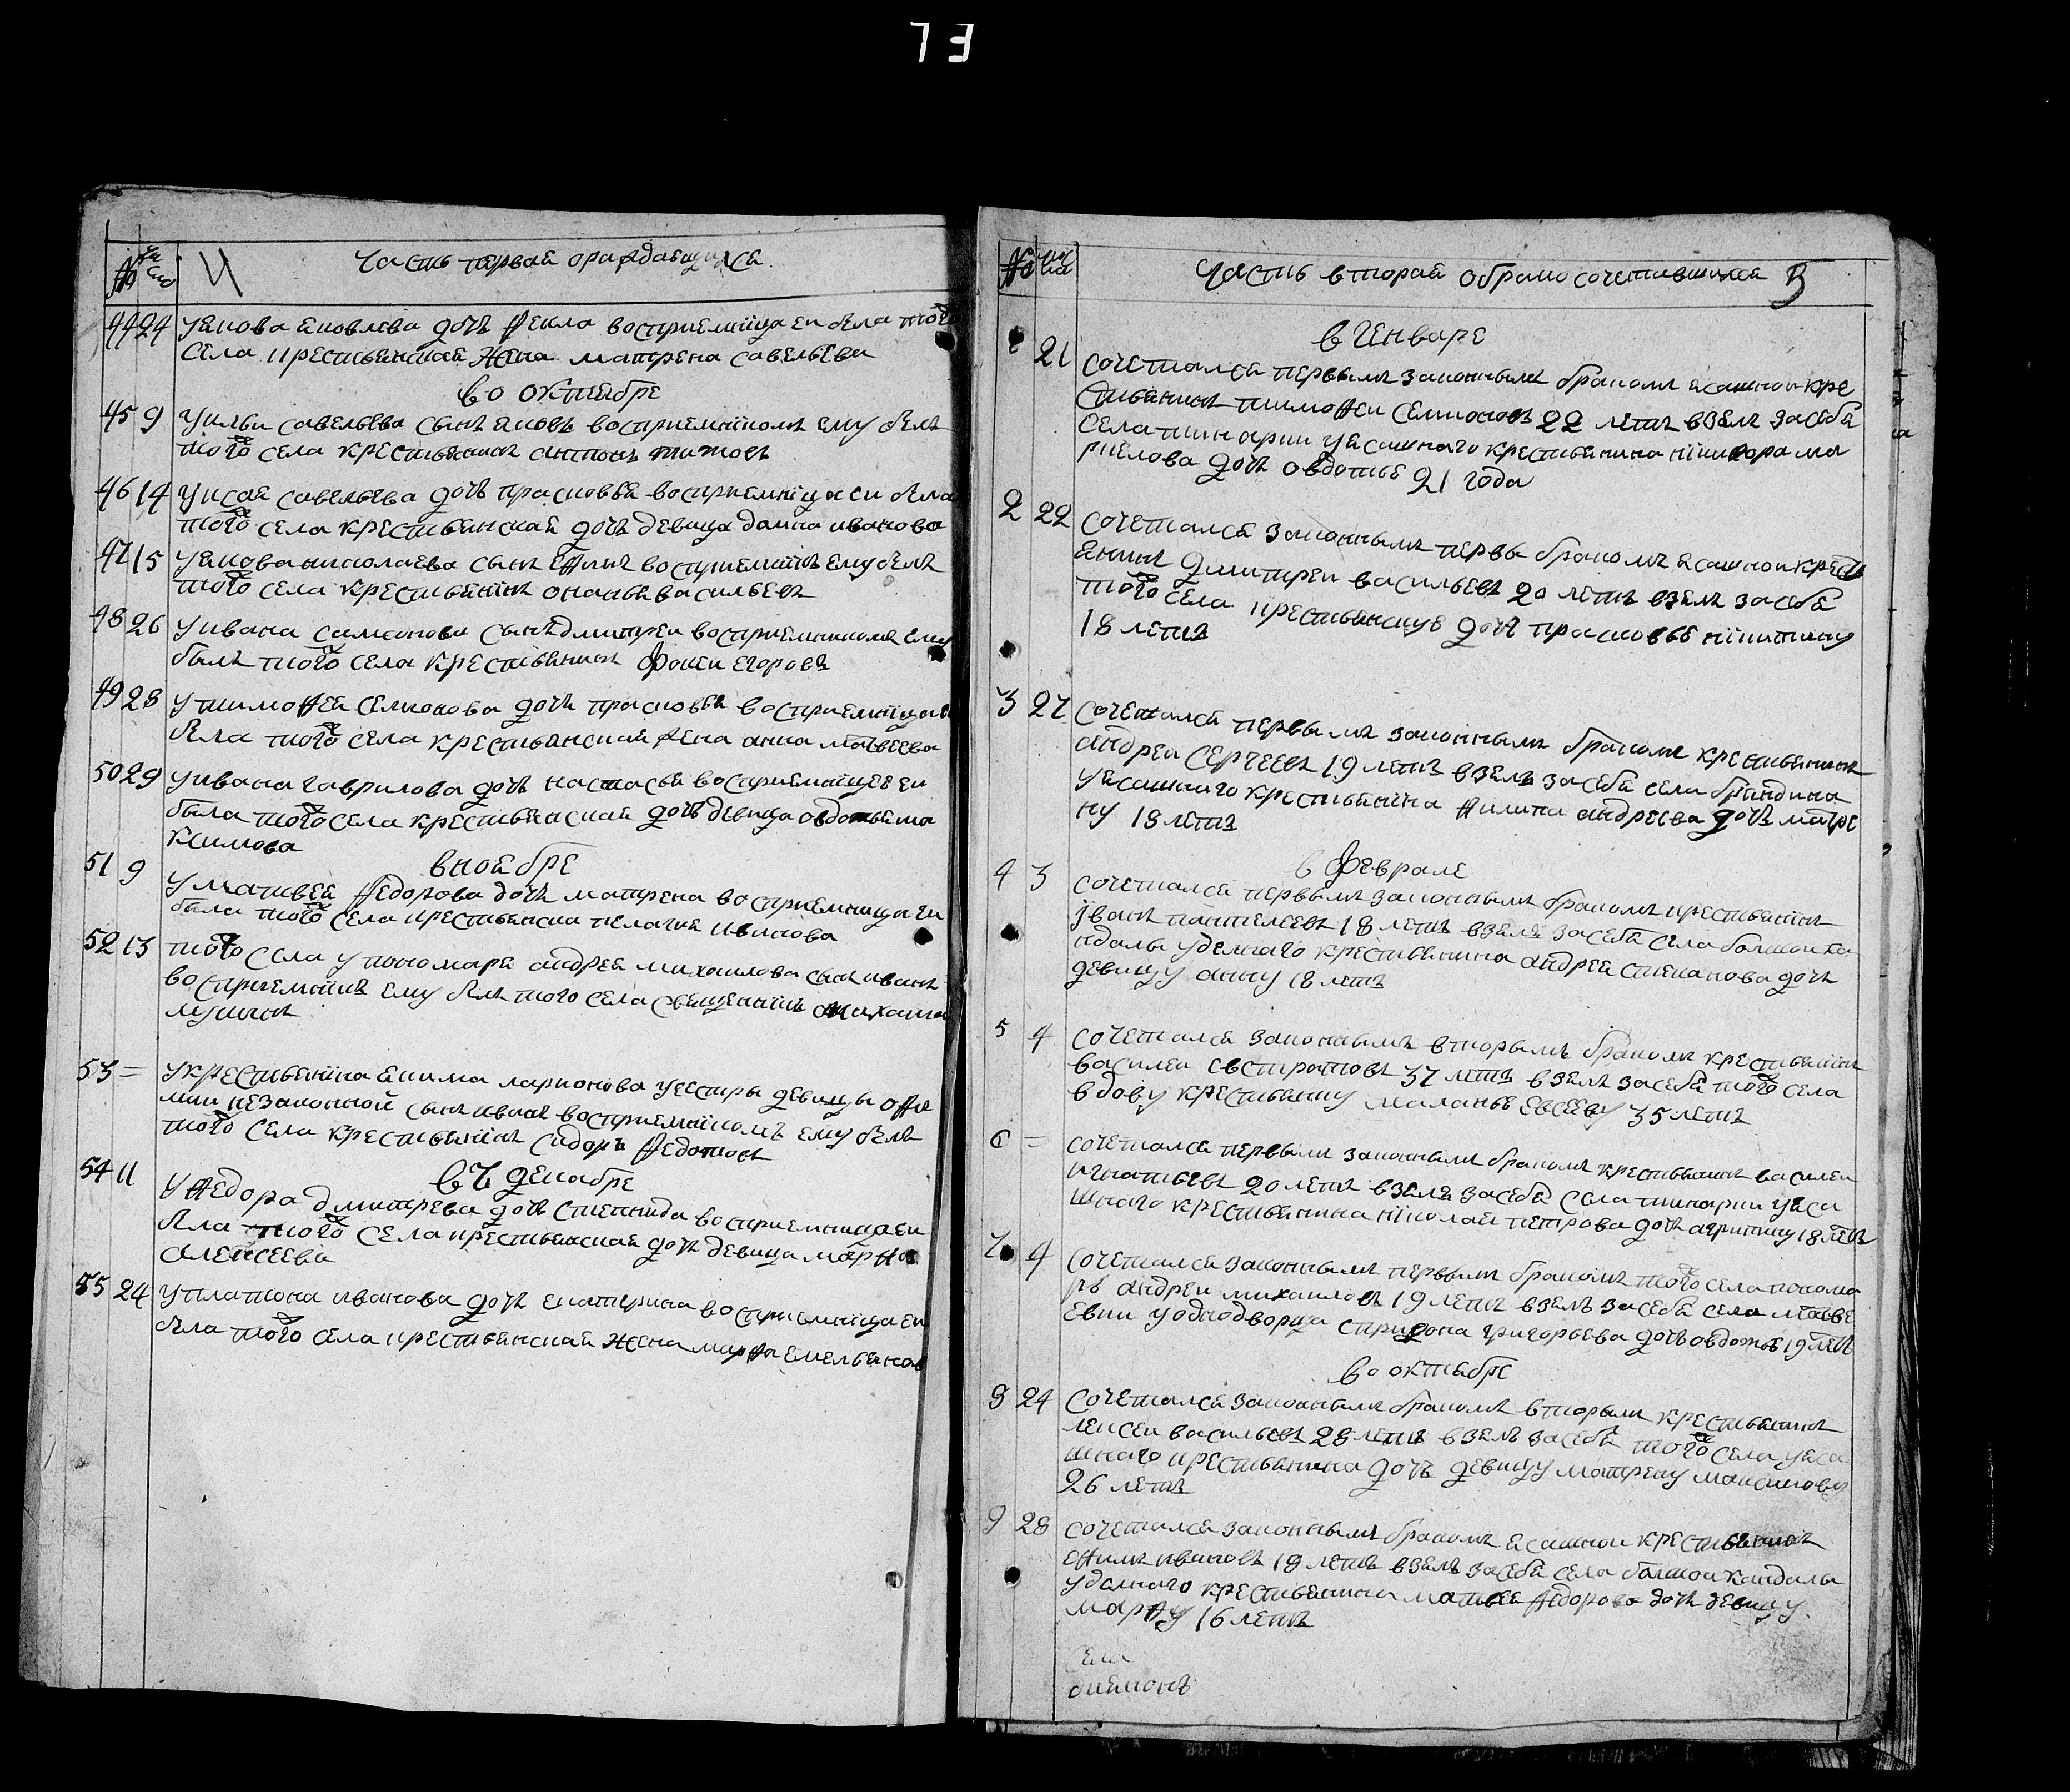 73
№ чи
сло
Ч
часть первая ораждающихся
44 24 уякова яковлева дочь Ѳекла восприемница еи была того
села крестьянская жена матрена савельева
во октябре
45 9 уильи савельева сынъ яковъ восприемникомъ ему былъ
того села крестьянинъ антонъ титовъ
46 14 уисая савельева дочь прасковья восприемница еи была
того села крестьянская дочь девица домна иванова
47 15 уякова николаева сынъ еѲимъ восприемникъ ему былъ
того села крестьянинъ онанья васильевъ
48 26 уивана самсонова сынъ дмитреи восприемникомъ ему
былъ того села крестьянинъ фокеи егоровъ
49 28 утимоѲея семионова дочь прасковья восприемница еи
была того села крестьянская жена анна матвеева
50 29 уивана гаврилова дочь настасья восприемницею еи
была того села крестьянская дочь девица овдотья ма
ксимова
вноябре
51 9 уматвея Ѳедорова дочь матрена восприемница еи
была того села крестьянска пелагея
52 13 того села упономаря андрея михаилова сынъ иванъ
восприемникъ ему былъ того села священникъ михаила
лукинъ
53 = укрестьянина якима ларионова усестры девицы оѲи
мии незаконной сынъ иванъ восприемникомъ ему былъ
того села крестьянинъ сидоръ Ѳедотовъ
вЪ декабре
54 11 уѲедора дмитрева дочь степанида восприемница еи
была того села крестьянская дочь девица марѲа
алексеева
55 24 уплатона иванова дочь екатерина восприемница еи
была того села крестьянская жена марѲа емельянов
№ чис
ла
часть вторая обракосочетавшихся 5
в Генваре
21 сочетался первымъ законнымъ бракомъ ясашнои кре
стьянинъ тимоѲеи семионовъ 22 летъ взялъ засебя
села тинарки уясашнаго крестьянина никифора ма
дочь овдотью 21 года
2 22 сочетался законнымъ первы бракомъ ясашнои крестъ
янинъ димитреи васильевъ 20 летъ взялъ засебя
того села крестьянскую дочь прасковью никитину
18 летъ
3 27 сочетался первымъ законнымъ бракомъ крестьянинъ
андреи сергеевъ 19 летъ взялъ засебя села брандина
уясашнаго крестьянина Ѳилипа андреева дочь матре
ну 18 летъ
в феврале
4 3 сочетался первымъ законнымъ бракомъ крестьянинъ
Iванъ пантелеевъ 18 летъ взялъ засебя села большои ка
ндалы уделнаго крестьянина андрея степанова дочь
девицу анну 18 летъ
5 4 сочетался законнымъ вторымъ бракомъ крестьянинъ
василеи евстратовъ 37 летъ взялъ засебя того села
вдову крестьянку маланью евсееву 35 летъ
6 = сочетался первымъ законнымъ бракомъ крестьянинъ василеи
игнатьевъ 20 летъ взялъ засебя села тинарки уяса
шнаго крестьянина николая петрова дочь агрипину 18 летъ
7 4 сочетался законнымъ первымъ бракомъ того села понома
ръ андреи михаиловъ 19 летъ взялъ засебя села матве
евки уоднодворца спиридона григорьева дочь овдотью 19 летъ
во октябре
8 24 сочетался законнымъ бракомъ вторымъ крестьянинъ
лексеи васильевъ 28 летъ взялъ засебя того села уяса
шнаго крестьянина дочь девицу матрену максимову
26 летъ
9 28 сочетался законнымъ бракомъ ясашнои крестьянинъ
еѲимъ ивановъ 19 летъ взялъ засебя села большои кандалы
уделнаго крестьянина матвея Ѳедорова дочь девицу
марѲу 16 летъ
села
диаконъ